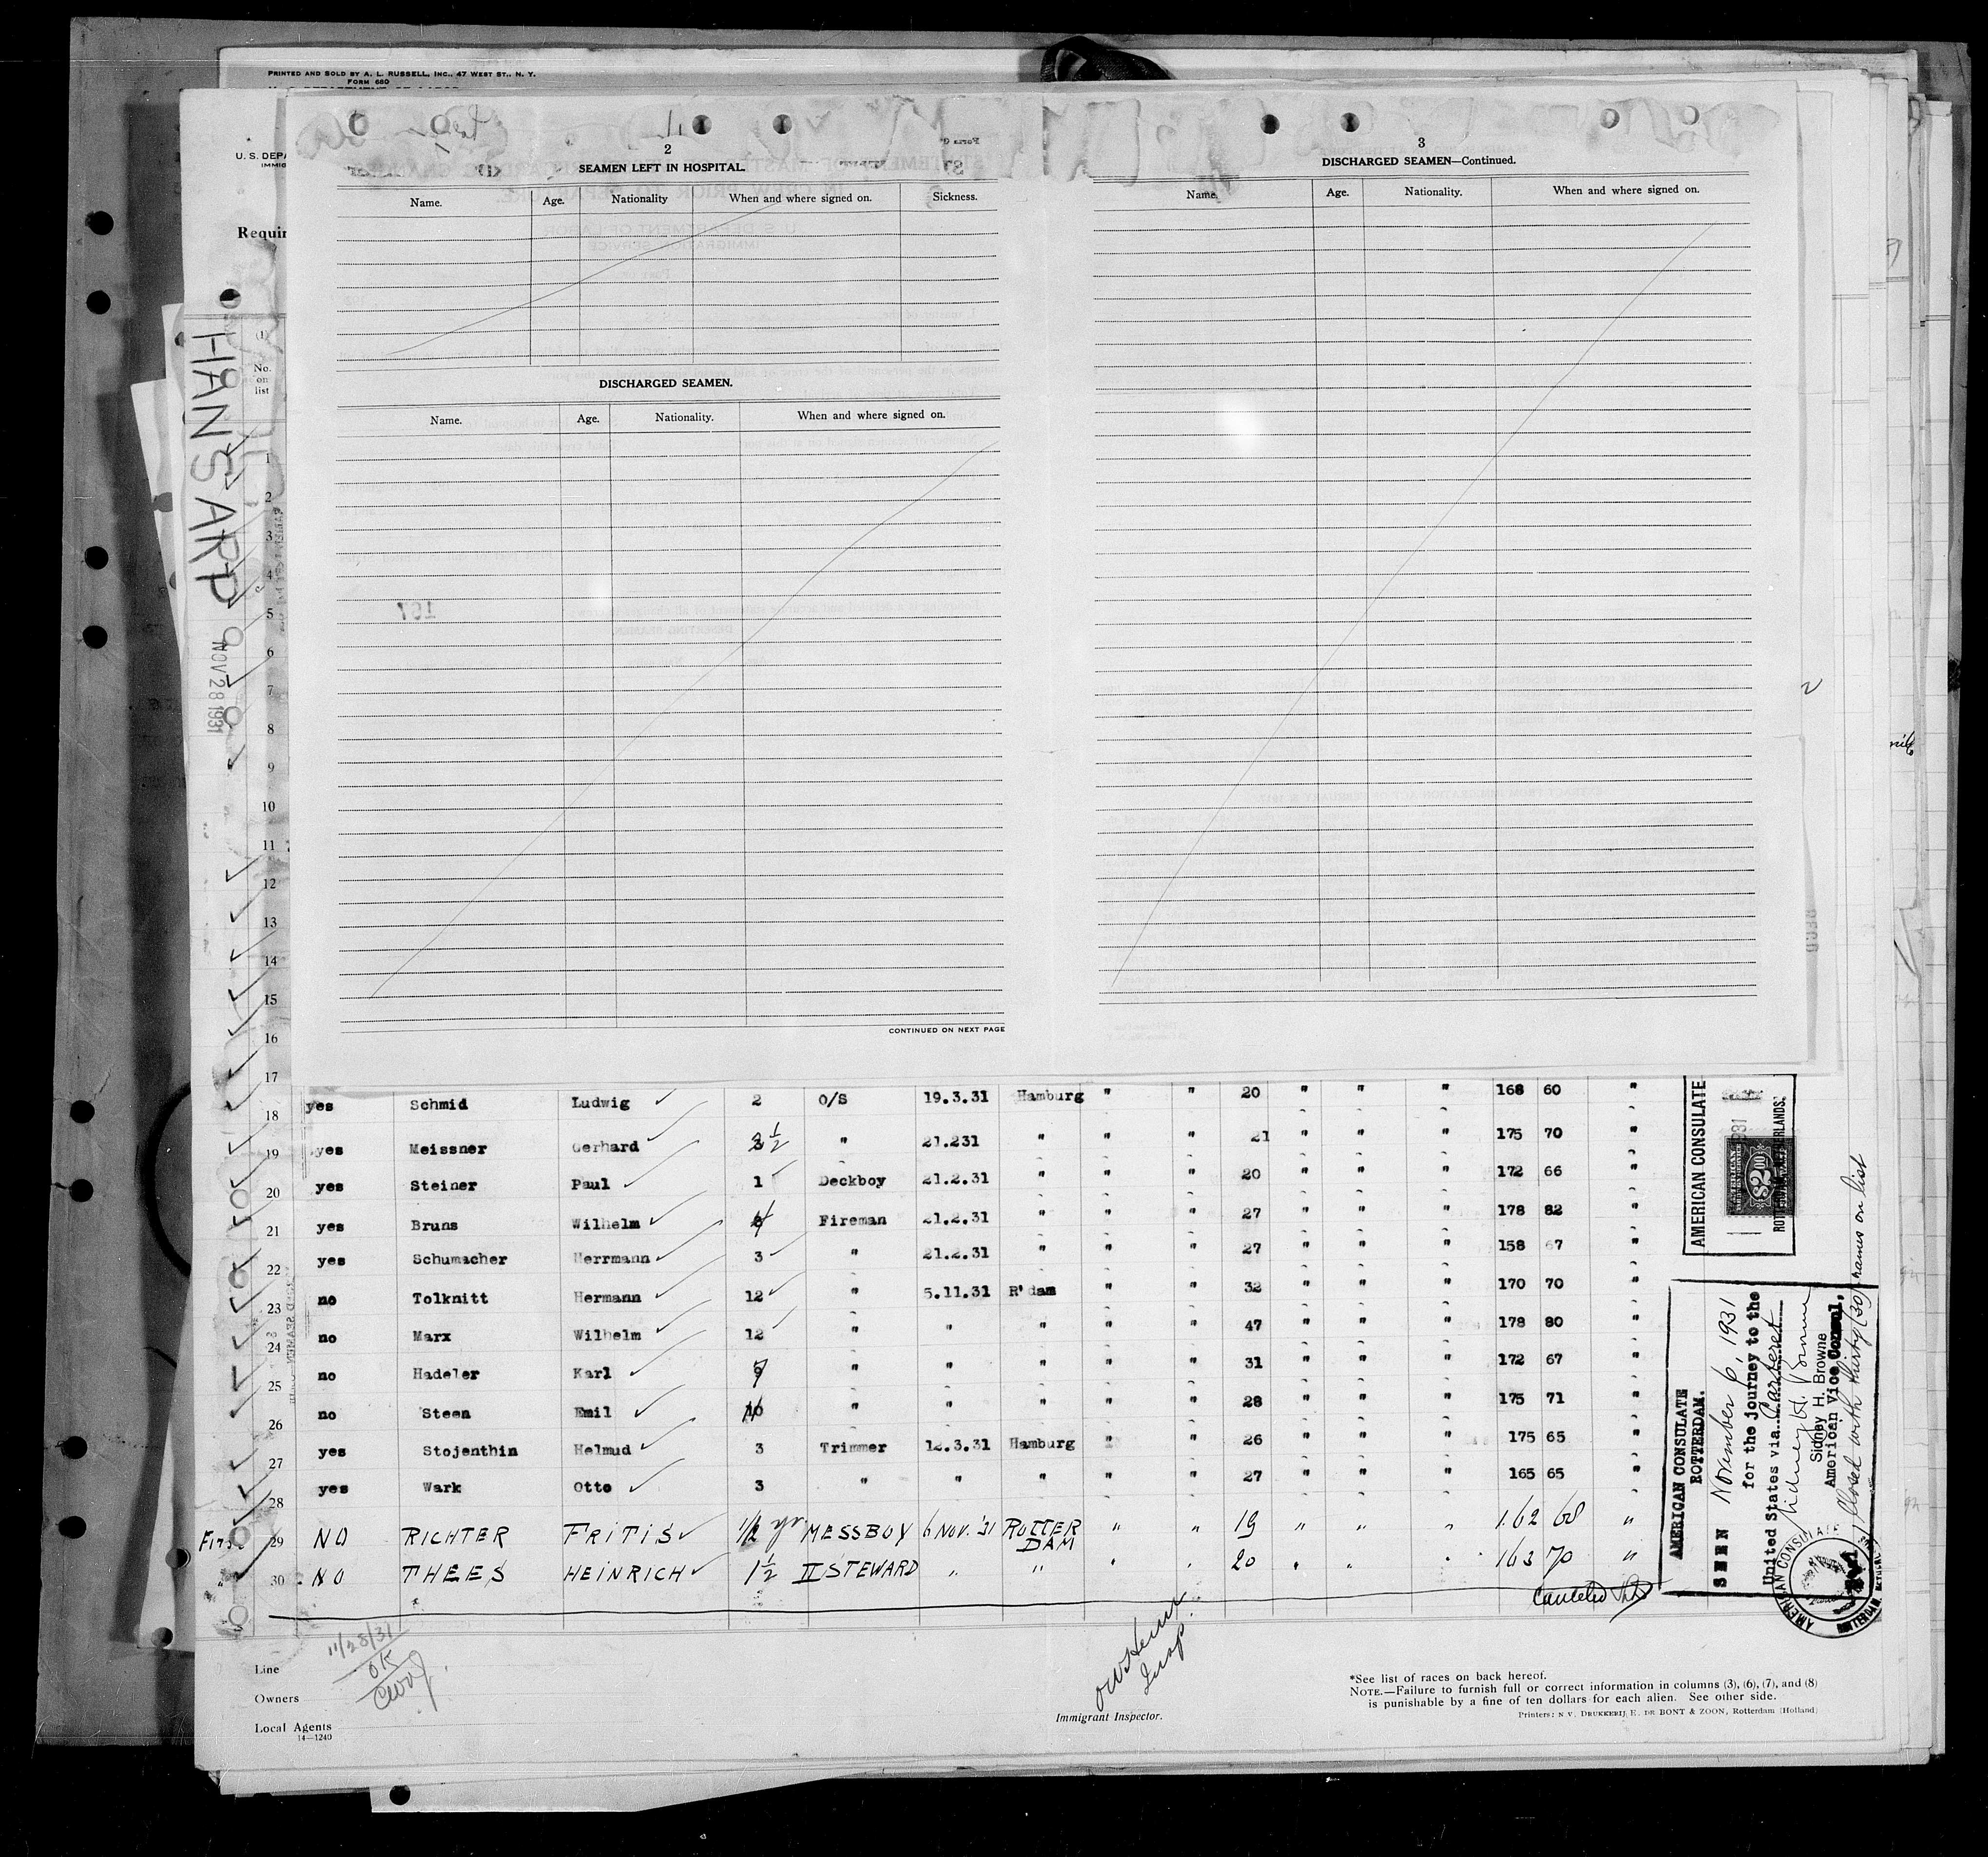 PRINTED AND SOLD BY A. L. RUSSELL, INC., 47 WEST ST., N. Y.
FORM 680
U. S. DEPA
IMMIG
Requir
(1)
No. on list
HANS ARP
NOV 28 1931
2
SEAMEN LEFT IN HOSPITAL.
Name. Age. Nationality When and where signed on. Sickness.
DISCHARGED SEAMEN.
Name. Age. Nationality. When and where signed on.
167
CONTINUED ON NEXT PAGE
3
DISCHARGED SEAMEN—Continued.
Name. Age. Nationality. When and where signed on.
2
RECD
1
2
3
4
5
6
7
8
9
10
11
12
13
14
15
16
17
18 yes Schmid Ludwig ✓ 2 O/S 19.3.31 Hamburg " " 20 " " " 168 60 "
19 yes Meissner Gerhard ✓ 3½ " 21.231 " " " 21 " " " 175 70 "
20 yes Steiner Paul ✓ 1 Deckboy 21.2.31 " " " 20 " " " 172 66 "
21 yes Bruns Wilhelm ✓ 4 Fireman 21.2.31 " " " 27 " " " 178 82 "
22 yes Schumacher Herrmann ✓ 3 " 21.2.31 " " " 27 " " " 158 67 "
23 no Tolknitt Hermann ✓ 12 " 5.11.31 R'dam " " 32 " " " 170 70 "
24 no Marx Wilhelm ✓ 12 " " " " " 47 " " " 178 80 "
25 no Hadeler Karl ✓ " " " " " 31 " " " 172 67 "
26 no Steen Emil ✓ " " " " " 28 " " " 175 71 "
27 yes Stojenthin Helmud ✓ 3 Trimmer 12.3.31 Hamburg " " 26 " " " 175 65 "
28 yes Wark Otto ✓ 3 " " " " " 27 " " " 165 65 "
29 NO RICHTER FRITIS ✓ 1/2 yr MESSBOY 6 NOV. '31 ROTTERDAM " " 19 " " " 162 68 "
30 NO THEES HEINRICH ✓ 1½ II STEWARD " " " " 20 " " " 163 70 "
First
Canceled
AMERICAN CONSULATE
$2.00
AMERICAN CONSULATE
ROTTERDAM.
SEEN November 6, 1931
for the journey to the
United States via Carteret
Sidney H. Browne
Sidney H. Browne
American Vice Consul,
Closed with thirty (30) names on list
AMERICAN CONSULATE
11/28/31
OK
Line
Owners
Local Agents
14—1240
Insp.
Immigrant Inspector.
*See list of races on back hereof.
NOTE.—Failure to furnish full or correct information in columns (3), (6), (7), and (8)
is punishable by a fine of ten dollars for each alien. See other side.
Printers: N.V. DRUKKERIJ E. DE BONT & ZOON, Rotterdam (Holland)